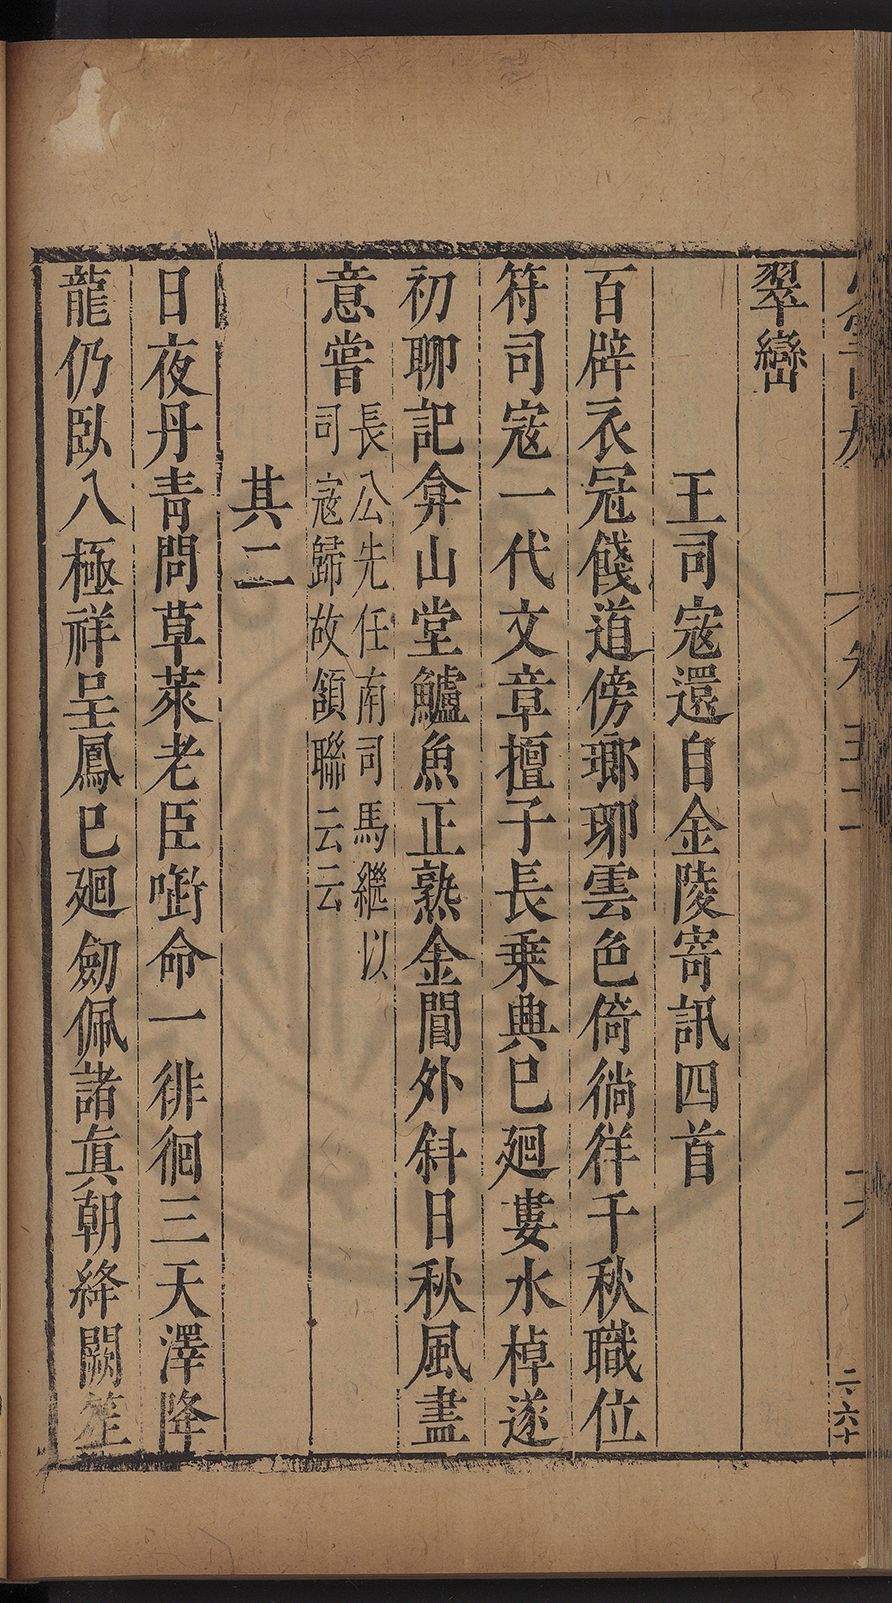 翠巒
王司寇還自金陵寄訊四首
百辟衣冠餞道傍瑯琊雲色倚徜徉千秋職位
符司寇一代文章擅子長乗興巳廻婁水棹遂
初聊記弇山堂鱸魚正熟金閶外斜日秋風盡
意嘗
長公先任南司馬繼以
司寇歸故頷聯云云
其二
日夜丹青問草萊老臣啣命一徘徊三天澤降
龍仍臥八極祥呈鳳巳廻劒佩諸眞朝絳闕笙
二、六十